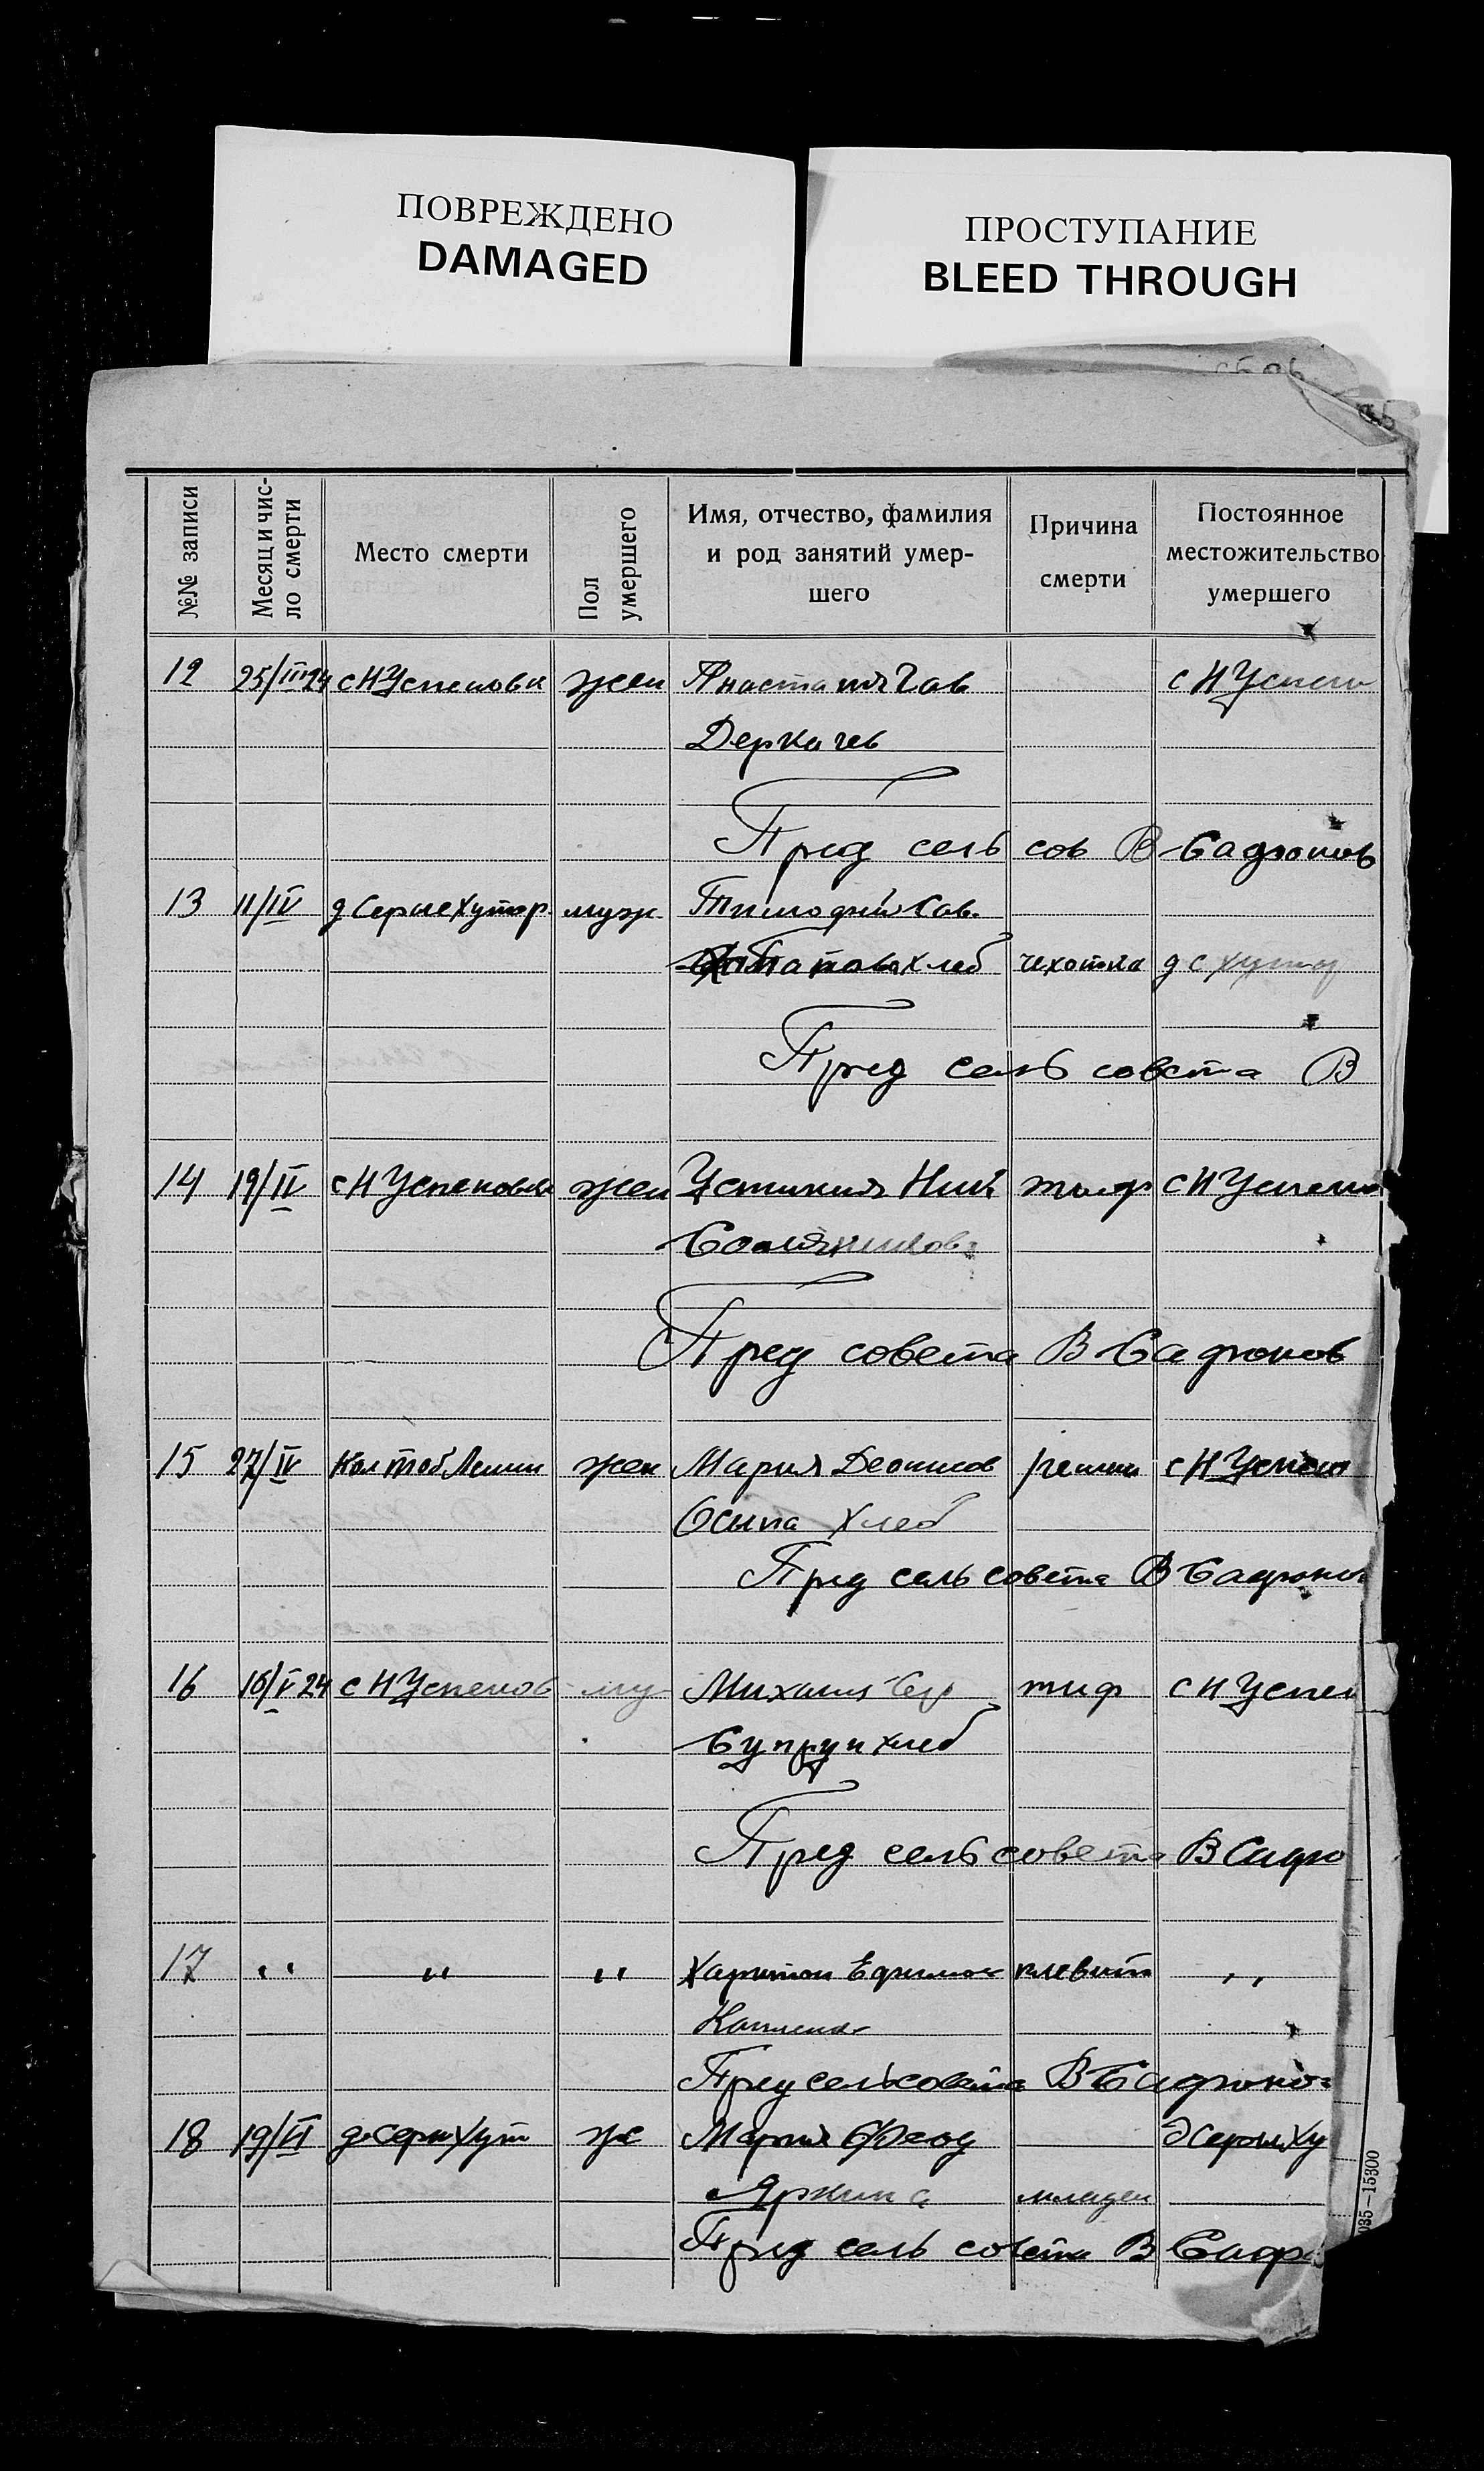 ПОВРЕЖДЕНО
DAMAGED
ПРОСТУПАНИЕ
BLEED THROUGH
№№ записи
Месяц и чис-
ло смерти
Место смерти
Пол
умершего
Имя, отчество, фамилия
и род занятий умер-
шего
Причина
смерти
Постоянное
местожительство
умершего
12 25/III 24 с Н Успеновк жен Анастасия Сав с Н Успено
Деркачев
Пред сель сов В Сафонов
13 11/IV д Серые хутор. муж. Тимофей Сав.
хлеб чехотка д с хутор
Пред сель совета В
14 19/IV с Н Успеновка жен Устиния Ник тиф с Н Успено
Пред совета В Сафонов
15 27/IV Ленин жен Мария Деонисов с Н Успено
Осипа хлеб
Пред сель совета В Сафонов
16 16/V 24 с Н Успенов му Михаил тиф с Н Успен
Супрун хлеб
Пред сель совета В Сафо
17 " " " Харитон Ефимов плевит "
Пред сельсовета В Сафоно
18 19/VI д Серы хут же Мария Феод д Серых ху
Яркина младен
Пред сель совета В Сафо
035—15300